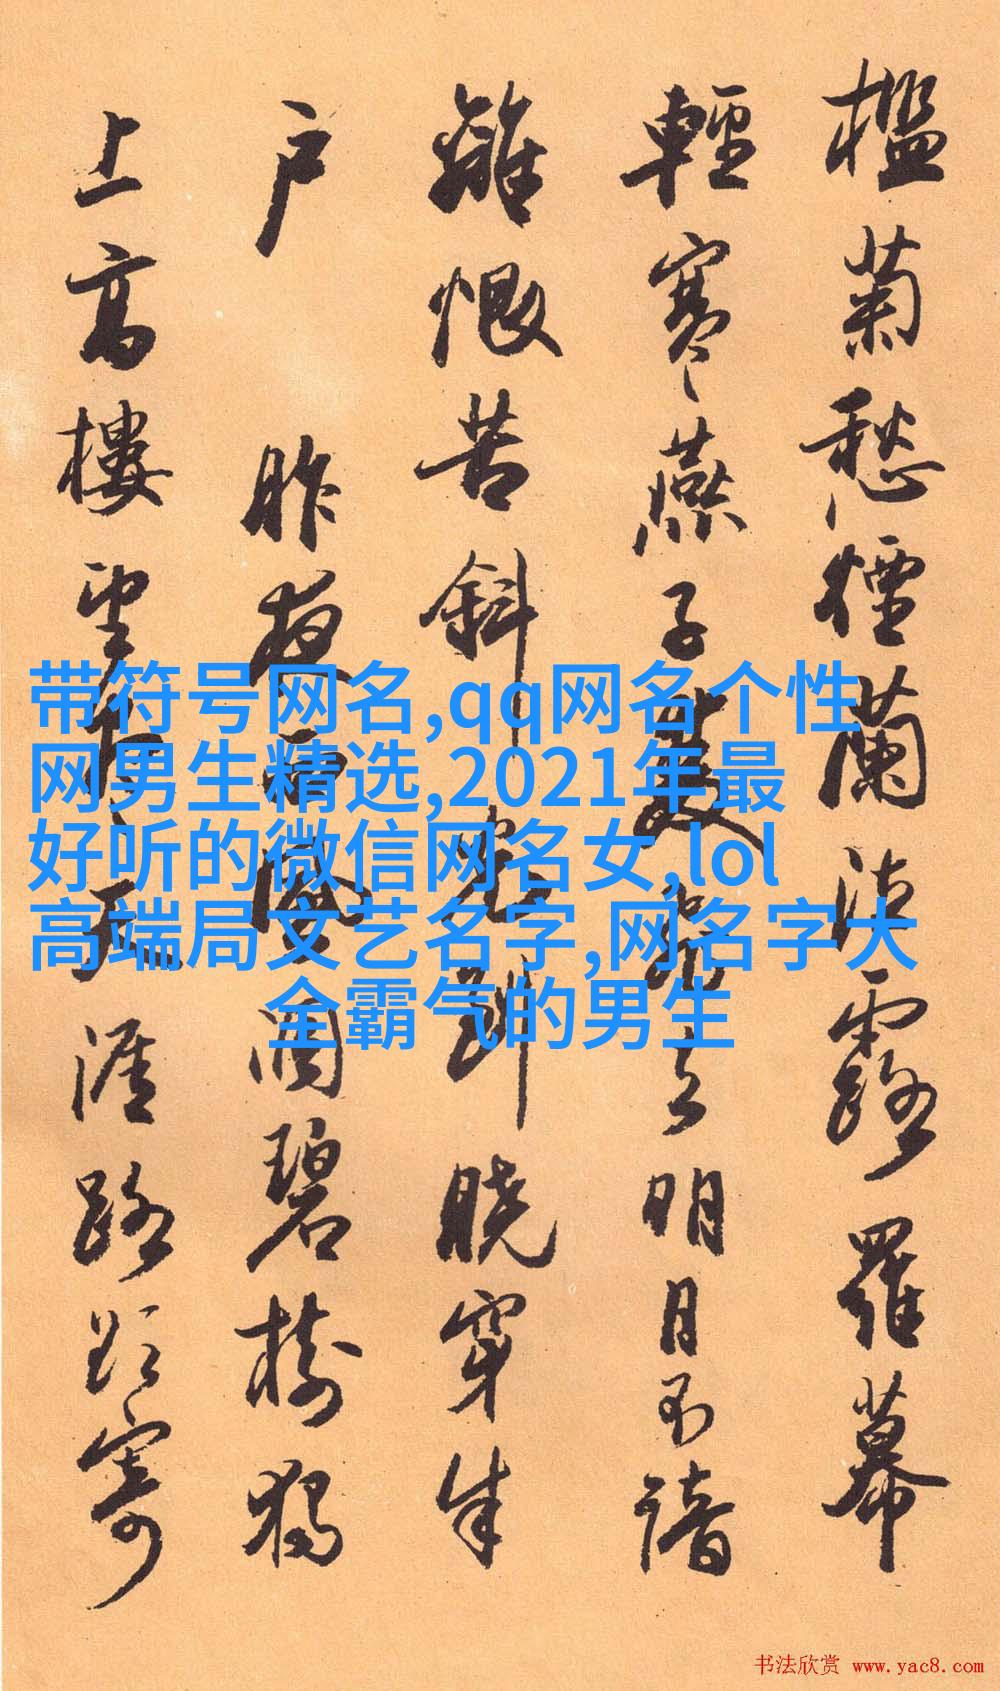 檻菊愁煙蘭泣露羅幕
輕寒燕子雙飛去明月不諳
離恨苦斜光到曉穿朱
户 昨夜西風凋碧樹獨
上高樓望盡天涯路欲寄
带符号网名,qq网名个性
网男生精选,2021年最
好听的微信网名女,lol
高端局文艺名字,网名字大
全霸气的男生
书法欣赏 www.yac8.com